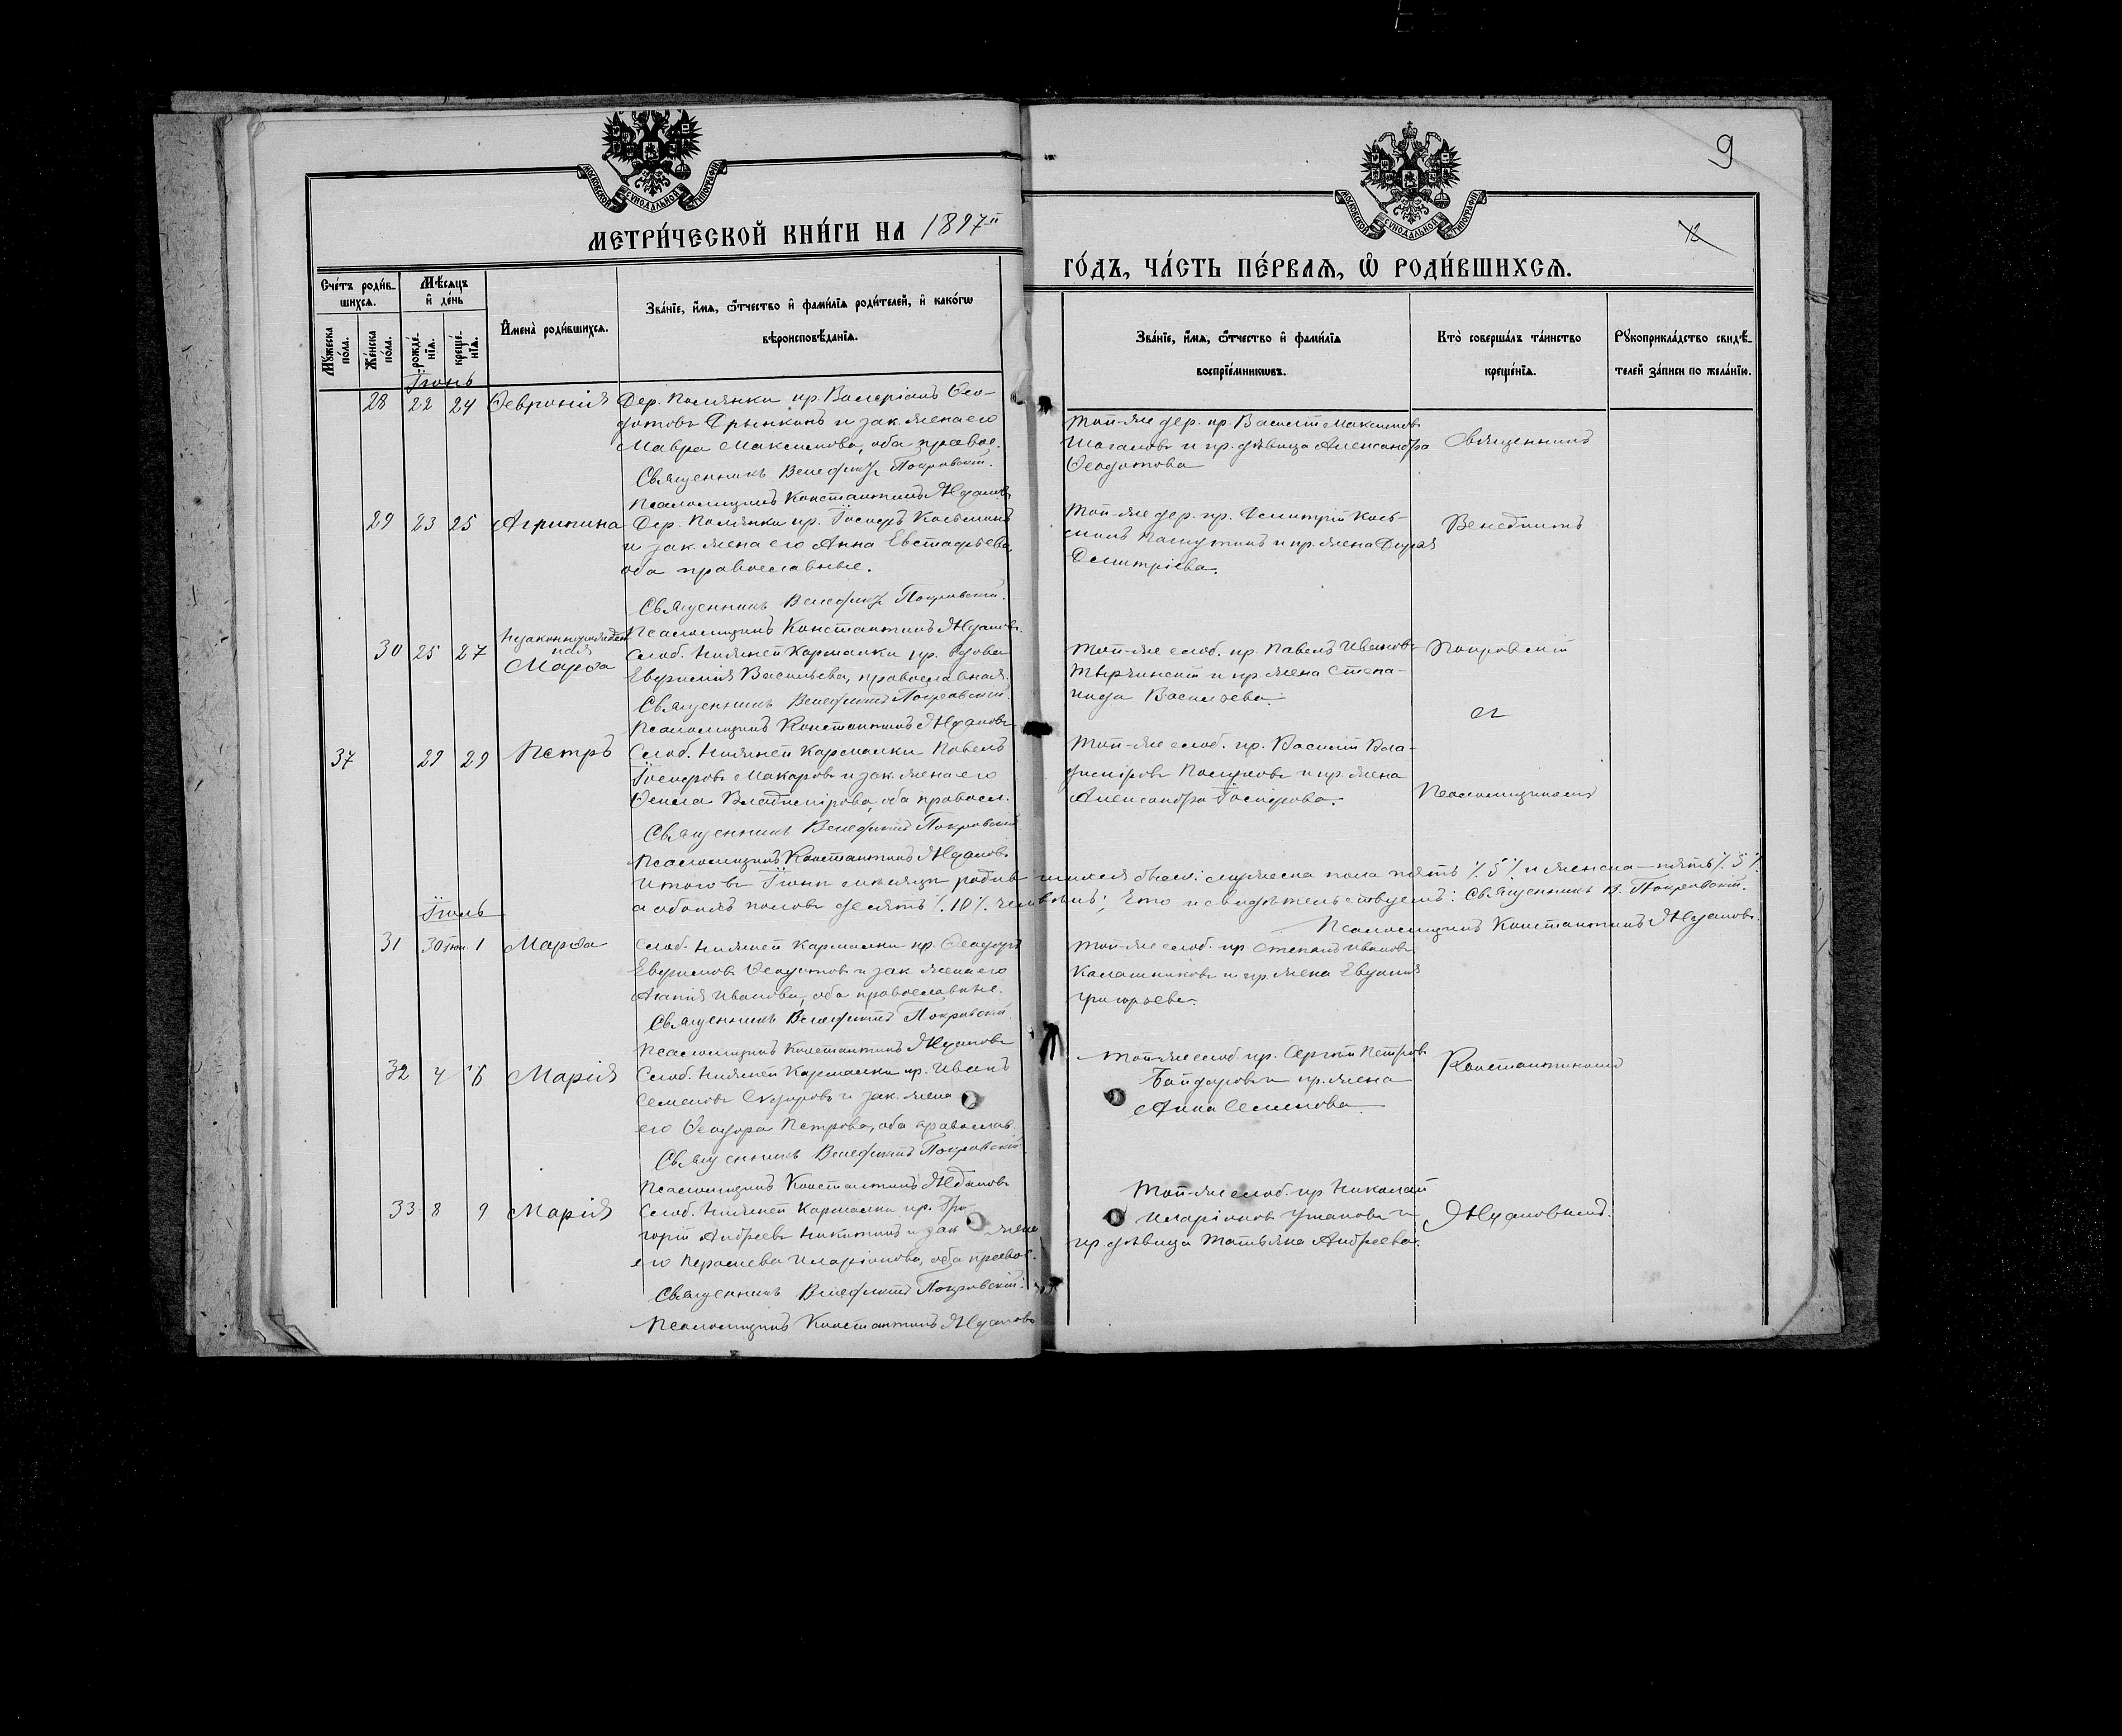 9
12
МЕТРИ́ЧЕСКОЙ КНИ́ГИ НА 1897й
ГО́ДЪ, ЧА́СТЬ ПЕ́РВАѦ, Ѽ РОДИ́ВШИХСѦ.
Сче́тъ роди́в-
шихсѧ.
Мѣ́сѧцъ
и҆ де́нь
Мꙋ́жеска по́ла.
Же́нска по́ла.
рожде́-
нїѧ.
креще́-
нїѧ.
И҆мена̀ роди́вшихсѧ.
Зва́нїе, и҆́мѧ, ѻ҆́тчество и҆ фами́лїѧ роди́телей, и҆ како́гѡ
вѣроисповѣ́данїѧ.
Зва́нїе, и҆́мѧ, ѻ҆́тчество и҆ фами́лїѧ
воспрїе́мникѡвъ.
Кто̀ соверша́лъ та́инство
креще́нїѧ.
Рꙋкоприкла́дство свидѣ́-
телей за́писи по жела́нїю.
Іюнь
28 22 24 Ѳевронія Дер. Полянки кр. Валеріанъ Ѳео-
дотовъ Дрынкинъ и зак. жена его
Мавра Максимова, оба правос.
Священникъ Венедиктъ Покровскій.
Псаломщикъ Константинъ Ждановъ
Той-же дер. кр. Василій Максимовъ
Шагаловъ и кр. дѣвица Александра
Ѳеодотова
Священникъ
29 23 25 Агрипина Дер. Полянки кр. Іосифъ Косьминъ
и зак. жена его Анна Евстафьева,
оба православные.
Священникъ Венедиктъ Покровскій.
Псаломщикъ Константинъ Ждановъ.
Той-же дер. кр. Димитрій Кось-
минъ и кр. жена Дарія
Димитріева.
Венедиктъ
30 25 27 Незаконнорожден
ная
Марѳа
Слоб. Нижней Кармалки кр. вдова
Евфимія Васильева, православная.
Священникъ Венедиктъ Покровскій.
Псаломщикъ Константинъ Ждановъ
Той-же слоб. кр. Павелъ Ивановъ
и кр. жена Степа-
нида Васильева.
Покровскій
съ
37 29 29 Петръ Слоб. Нижней Кармалки Павелъ
Іосифовъ Макаровъ и зак. жена его
Ѳекла Владимірова, оба правосл.
Священникъ Венедиктъ Покровскій
Псаломщикъ Константинъ Ждановъ
Той-же слоб. кр. Василій Вла-
диміровъ и кр. жена
Александра Іосифова.
Псаломщикомъ
Итого въ Іюнѣ мѣсяцѣ родившихся было: мужеска пола пять ٪ 5 ٪ и женска — пять ٪ 5 ٪
а обоихъ половъ десять ٪ 10 ٪ человѣкъ; Что и свидѣтельствуемъ: Священникъ В. Покровскій.
Псаломщикъ Константинъ Ждановъ.
Іюль
31 30 Іюн. 1 Марѳа Слоб. Нижней Кармалки кр. Ѳеодоръ
Евфимовъ Ѳедотовъ и зак. жена его
Агапія Иванова, оба православные.
Священникъ Венедиктъ Покровскій.
Псаломщикъ Константинъ Ждановъ
Той-же слоб. кр. Степанъ Ивановъ
Калашниковъ и кр. жена Евдокія
Григорьева.
32 4 6 Марія Слоб. Нижней Кармалки кр. Иванъ
Семеновъ Сидоровъ и зак. жена
его Ѳеодора Петрова, оба православ.
Священникъ Венедиктъ Покровскій
Псаломщикъ Константинъ Ждановъ
Той-же слоб. кр. Сергѣй Петровъ
Байдаровъ и кр. жена
Анна Семенова.
Константиномъ
33 8 9 Марія Слоб. Нижней Кармалки кр. Гри-
горій Андреевъ Никитинъ и зак. жена
его Параскева Иларіонова, оба правос.
Священникъ Венедиктъ Покровскій.
Псаломщикъ Константинъ Ждановъ
Той-же слоб. кр. Николай
Иларіоновъ Ушаковъ и
кр. дѣвица Татьяна Андреева.
Ждановымъ.